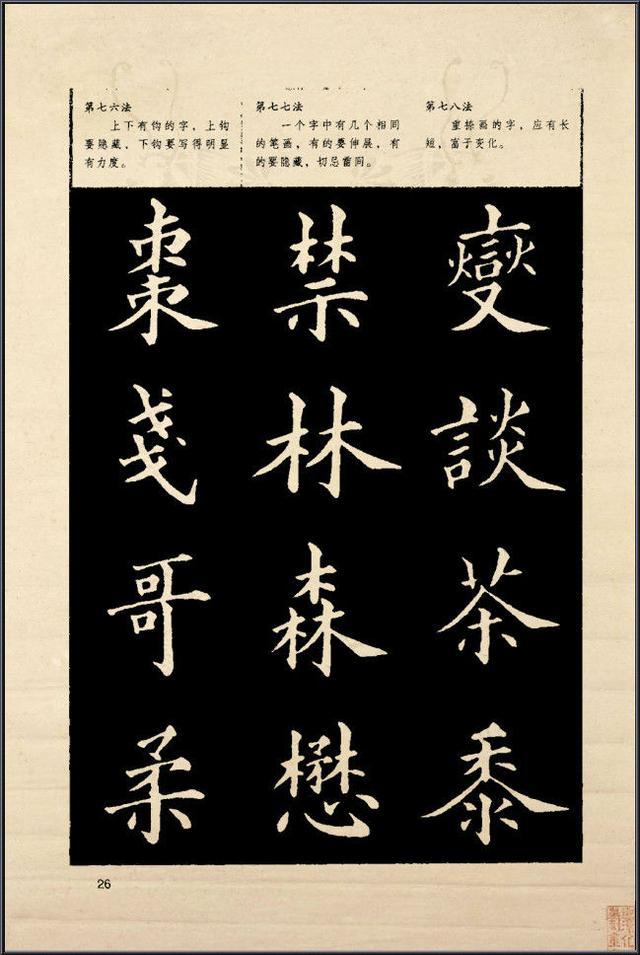 第七六法
上下有钩的字，上钩
要隐藏，下钩要写得明显
有力度。
第七七法
一个字中有几个相同
的笔画，有的要伸展，有
的要隐藏，切忌雷同。
第七八法
重捺画的字，应有长
短，富于变化。
棗
戔
哥
柔
禁
林
森
懋
變
談
茶
黍
26